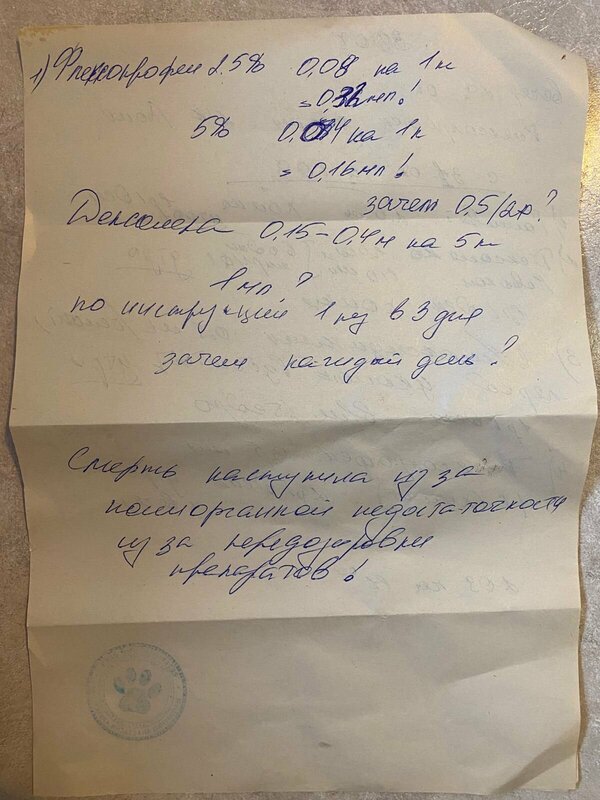 1) Флексопрофен 2.5% 0,08 на 1 кг
= 0,32 мл!
5% 0,04 на 1 к
= 0,16 мл!
зачем 0,5/2р?
Дексалета 0,15-0,4м на 5 кг
1 мл?
по инструкции 1 раз в 3 дня
зачем каждый день?
Смерть наступила из за
полиорганной недостаточности
из за передозировки
препаратов!